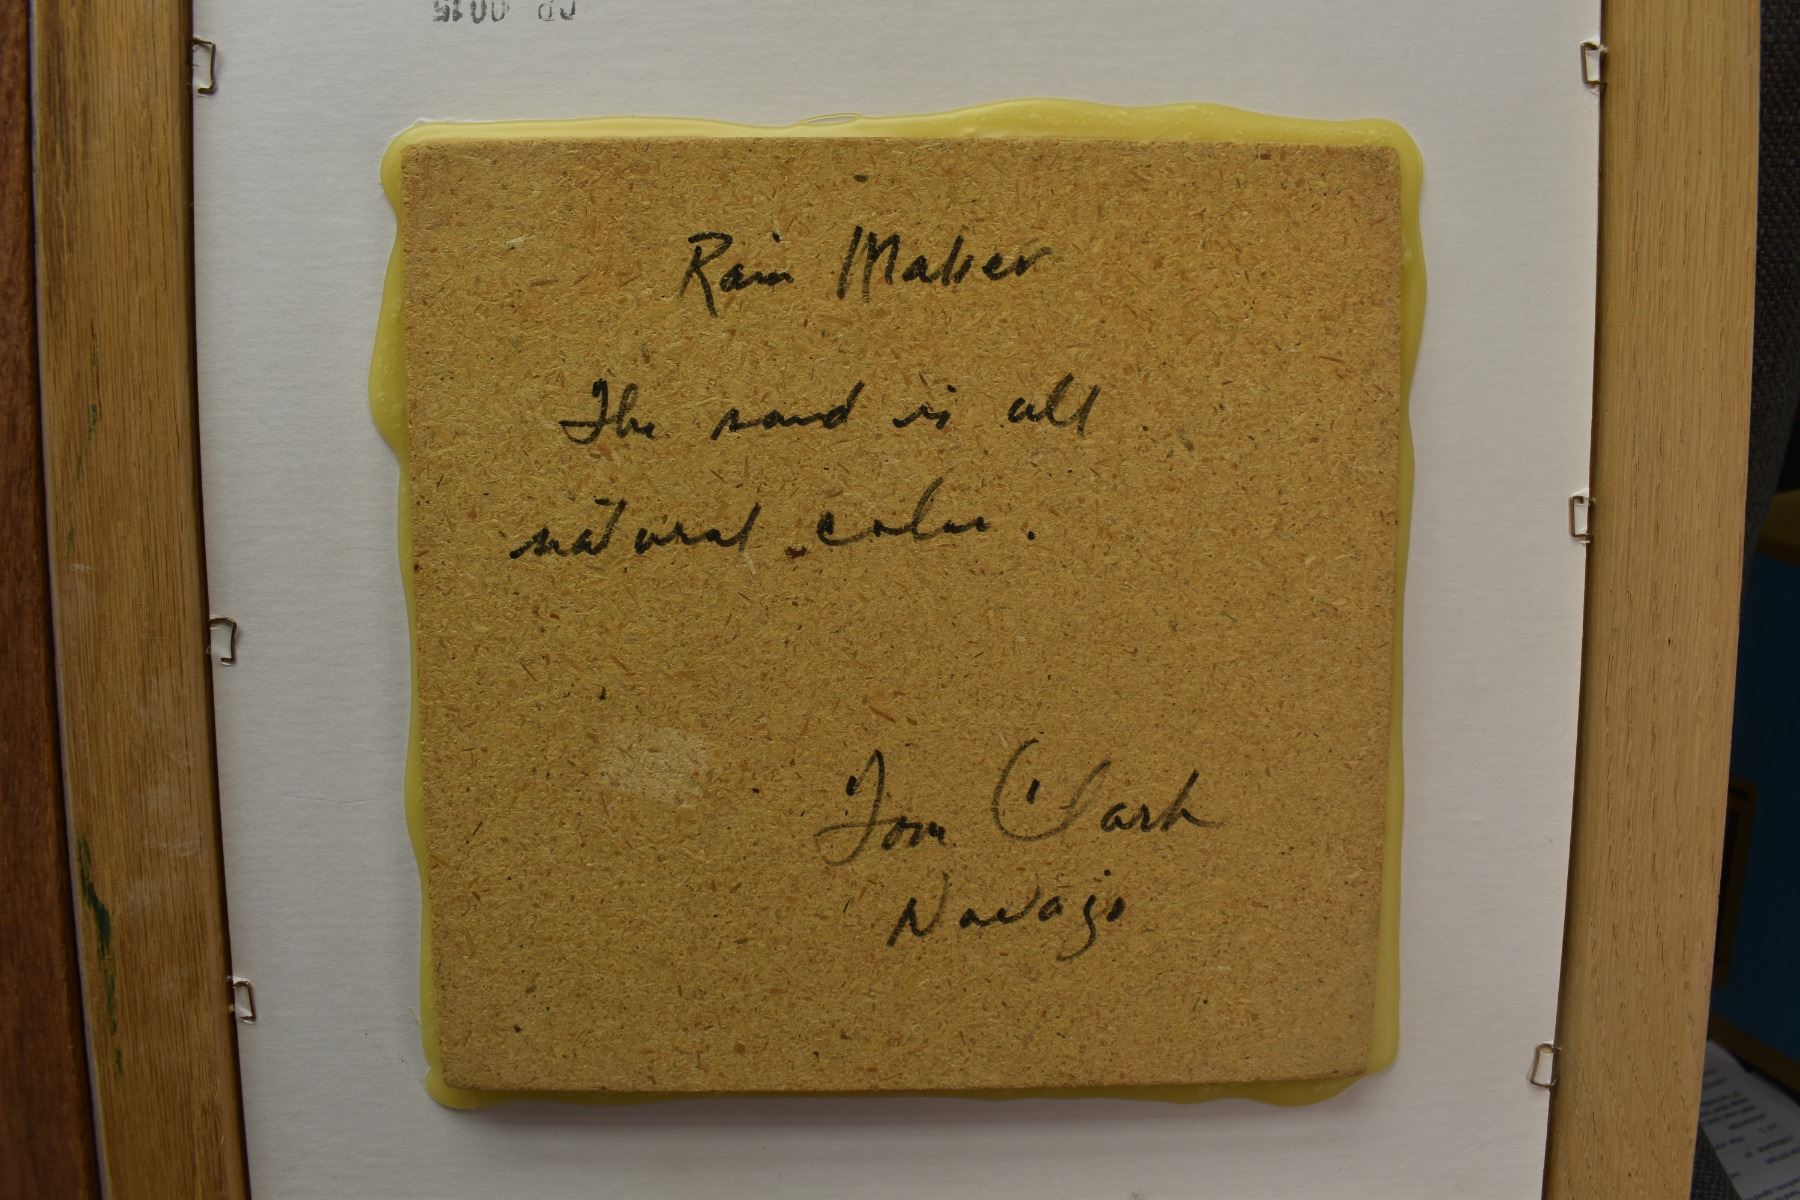 Rain Maker
The sand is all
natural color.
Tom Clark
Navajo